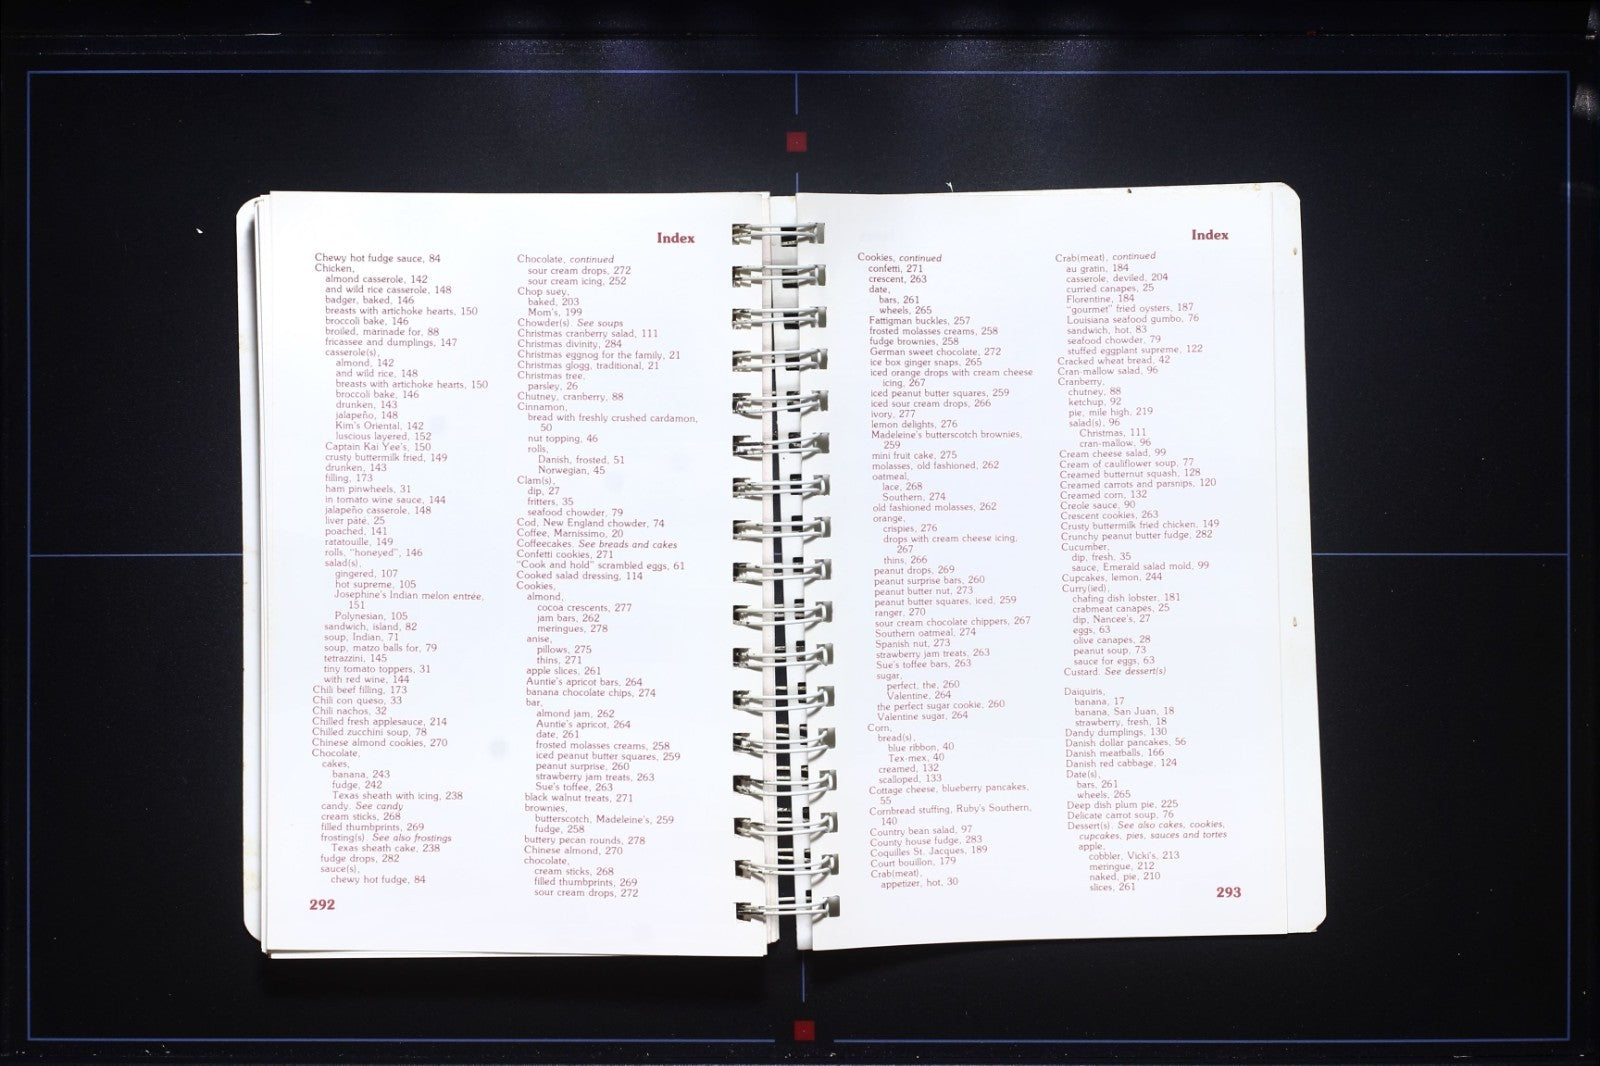 Index
Chewy hot fudge sauce, 84
Chicken,
almond casserole, 142
and wild rice casserole, 148
badger, baked, 146
breasts with artichoke hearts, 150
broccoli bake, 146
broiled, marinade for, 88
fricassee and dumplings, 147
casserole(s),
almond, 142
and wild rice, 148
breasts with artichoke hearts, 150
broccoli bake, 146
drunken, 143
jalapeño, 148
Kim's Oriental, 142
luscious layered, 152
Captain Kai Yee's, 150
crusty buttermilk fried, 149
drunken, 143
filling, 173
ham pinwheels, 31
in tomato wine sauce, 144
jalapeño casserole, 148
liver pâté, 25
poached, 141
ratatouille, 149
rolls, "honeyed", 146
salad(s),
gingered, 107
hot supreme, 105
Josephine's Indian melon entrée,
151
Polynesian, 105
sandwich, island, 82
soup, Indian, 71
soup, matzo balls for, 79
tetrazzini, 145
tiny tomato toppers, 31
with red wine, 144
Chili beef filling, 173
Chili con queso, 33
Chili nachos, 32
Chilled fresh applesauce, 214
Chilled zucchini soup, 78
Chinese almond cookies, 270
Chocolate,
cakes,
banana, 243
fudge, 242
Texas sheath with icing, 238
candy. See candy
cream sticks, 268
filled thumbprints, 269
frosting(s) See also frostings
Texas sheath cake, 238
fudge drops, 282
sauce(s),
chewy hot fudge, 84
292
Chocolate, continued
sour cream drops, 272
sour cream icing, 252
Chop suey,
baked, 203
Mom's, 199
Chowder(s). See soups
Christmas cranberry salad, 111
Christmas divinity, 284
Christmas eggnog for the family, 21
Christmas glogg, traditional, 21
Christmas tree,
parsley, 26
Chutney, cranberry, 88
Cinnamon,
bread with freshly crushed cardamon,
50
nut topping, 46
rolls,
Danish, frosted, 51
Norwegian, 45
Clam(s),
dip, 27
fritters, 35
seafood chowder, 79
Cod, New England chowder, 74
Coffee, Marnissimo, 20
Coffeecakes. See breads and cakes
Confetti cookies, 271
"Cook and hold" scrambled eggs, 61
Cooked salad dressing, 114
Cookies,
almond,
cocoa crescents, 277
jam bars, 262
meringues, 278
anise,
pillows, 275
thins, 271
apple slices, 261
Auntie's apricot bars, 264
banana chocolate chips, 274
bar,
almond jam, 262
Auntie's apricot, 264
date, 261
frosted molasses creams, 258
iced peanut butter squares, 259
peanut surprise, 260
strawberry jam treats, 263
Sue's toffee, 263
black walnut treats, 271
brownies,
butterscotch, Madeleine's, 259
fudge, 258
buttery pecan rounds, 278
Chinese almond, 270
chocolate,
cream sticks, 268
filled thumbprints, 269
sour cream drops, 272
Index
Cookies, continued
confetti, 271
crescent, 263
date,
bars, 261
wheels, 265
Fattigman buckles, 257
frosted molasses creams, 258
fudge brownies, 258
German sweet chocolate, 272
ice box ginger snaps, 265
iced orange drops with cream cheese
icing, 267
iced peanut butter squares, 259
iced sour cream drops, 266
ivory, 277
lemon delights, 276
Madeleine's butterscotch brownies,
259
mini fruit cake, 275
molasses, old fashioned, 262
oatmeal,
lace, 268
Southern, 274
old fashioned molasses, 262
orange,
crispies, 276
drops with cream cheese icing,
267
thins, 266
peanut drops, 269
peanut surprise bars, 260
peanut butter nut, 273
peanut butter squares, iced, 259
ranger, 270
sour cream chocolate chippers, 267
Southern oatmeal, 274
Spanish nut, 273
strawberry jam treats, 263
Sue's toffee bars, 263
sugar,
perfect, the, 260
Valentine, 264
the perfect sugar cookie, 260
Valentine sugar, 264
Corn,
bread(s),
blue ribbon, 40
Tex-mex, 40
creamed, 132
scalloped, 133
Cottage cheese, blueberry pancakes,
55
Cornbread stuffing, Ruby's Southern,
140
Country bean salad, 97
County house fudge, 283
Coquilles St. Jacques, 189
Court bouillon, 179
Crab(meat),
appetizer, hot, 30
Crab(meat), continued
au gratin, 184
casserole, deviled, 204
curried canapes, 25
Florentine, 184
"gourmet" fried oysters, 187
Louisiana seafood gumbo, 76
sandwich, hot, 83
seafood chowder, 79
stuffed eggplant supreme, 122
Cracked wheat bread, 42
Cran-mallow salad, 96
Cranberry,
chutney, 88
ketchup, 92
pie, mile high, 219
salad(s), 96
Christmas, 111
cran-mallow, 96
Cream cheese salad, 99
Cream of cauliflower soup, 77
Creamed butternut squash, 128
Creamed carrots and parsnips, 120
Creamed corn, 132
Creole sauce, 90
Crescent cookies, 263
Crusty buttermilk fried chicken, 149
Crunchy peanut butter fudge, 282
Cucumber,
dip, fresh, 35
sauce, Emerald salad mold, 99
Cupcakes, lemon, 244
Curry(ied),
chafing dish lobster, 181
crabmeat canapes, 25
dip, Nancee's, 27
eggs, 63
olive canapes, 28
peanut soup, 73
sauce for eggs, 63
Custard. See dessert(s)
Daiquiris,
banana, 17
banana, San Juan, 18
strawberry, fresh, 18
Dandy dumplings, 130
Danish dollar pancakes, 56
Danish meatballs, 166
Danish red cabbage, 124
Date(s),
bars, 261
wheels, 265
Deep dish plum pie, 225
Delicate carrot soup, 76
Dessert(s). See also cakes, cookies,
cupcakes, pies, sauces and tortes
apple,
cobbler, Vicki's, 213
meringue, 212
naked, pie, 210
slices, 261
293